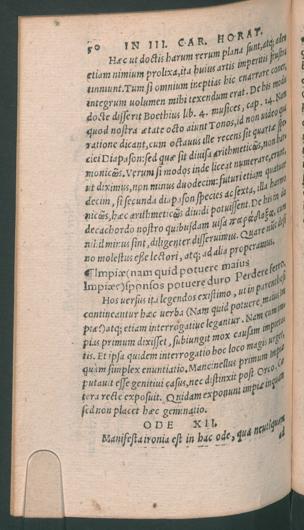 50 IN III. CAR. HORAT.
Hæc ut doctis harum rerum plana sunt, atq; adeo
etiam nimium prolixa, ita huius artis imperitis frustra
tinniunt. Tum si omnium ineptias hic enarrare coner,
integrum uolumen mihi texendum erat. De his modis
docte disserit Boethius lib. 4. musices, cap. 14. Nam
quod nostra ætate octo aiunt Tonos, id non uideo qua
ratione dicant, cum octauus ille recens sit quartæ spe-
ciei Diapason: sed quæ sit diuisa arithmeticῶς, non har-
monicῶς. Verum si modos inde liceat numerare, erunt,
ut diximus, non minus duodecim: futuri etiam quatuor
decim, si secunda diapason species ac sexta, illa harmo
nicῶς, hæc arithmeticῶς diuidi potuissent. De his in do
decachordo nostro quibusdam uisa παράδοξα, cum
nihil minus sint, diligenter disseruimus. Quare
no molestus esse lectori, atq; ad alia properamus.
¶Impiæ (nam quid potuere maius
Impiæ) sponsos potuere duro Perdere ferro.
Hos uersus ita legendos existimo, ut in parenthesi
contineantur hæc uerba (Nam quid potuere maius im
piæ?) atq; etiam interrogatiue legantur. Nam cum im-
pias primum dixisset, subiungit mox causam impieta-
tis. Et ipsa quidem interrogatio hoc loco magis urget,
quàm simplex enuntiatio. Mancinellus primum impiæ
putauit esse genitiui casus, nec distinxit post Orco. Cæ
tera recte exposuit. Quidam exponunt impiæ inquam
sed non placet hæc geminatio.
ODE XII.
Manifesta ironia est in hac ode, qua neutiquam
ad